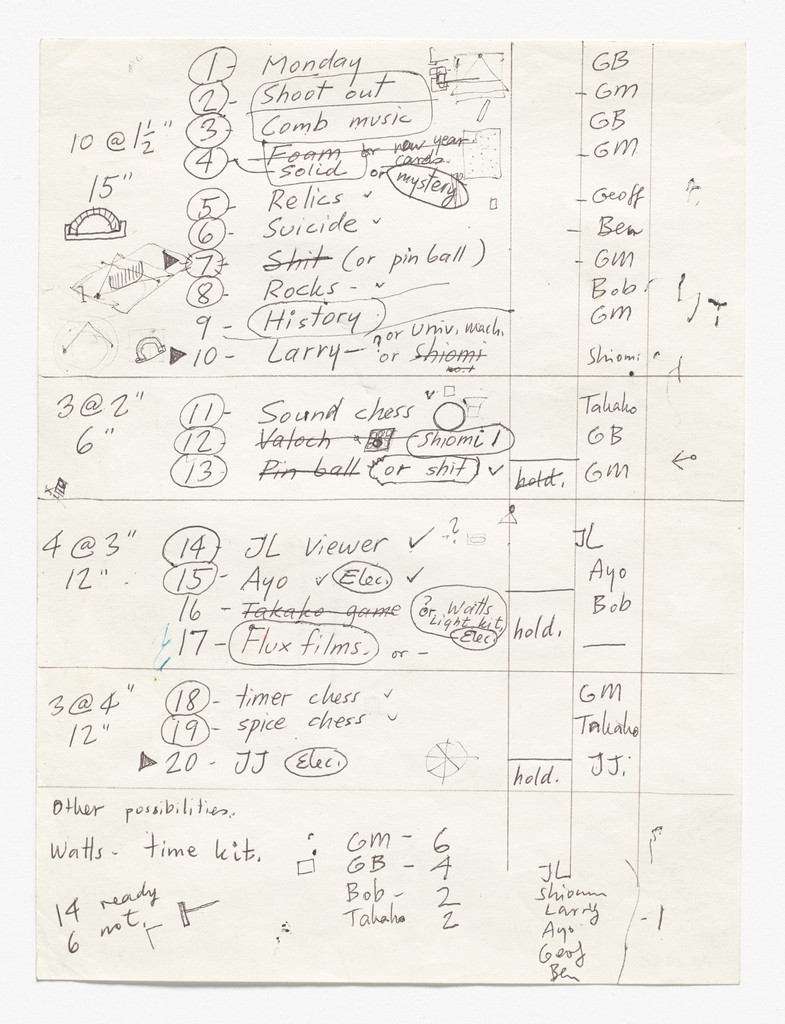 1 - Monday GB
2 - Shoot out - GM
3 - Comb music GB
10 @ 1½"
4 - Foam or new year cards - GM
solid or mystery
15"
5 - Relics ✓ - Geoff
6 - Suicide ✓ - Ben
7 - Shit (or pin ball) - GM
8 - Rocks - ✓ Bob
9 - History GM
? or Univ. mach.
10 - Larry - or Shiomi Shiomi
no. 1
3 @ 2" 11 - Sound chess ✓ Takako
6" 12 - Valoch Shiomi 1 GB
13 - Pin ball (or shit) ✓ hold. GM
4 @ 3" 14 - JL viewer ✓ ? JL
12" 15 - Ayo ✓ Elec. ✓ Ayo
16 - Takako game ? or Watts Light kit, Elec. hold. Bob
17 - Flux films. or - —
3 @ 4" 18 - timer chess ✓ GM
12" 19 - spice chess ✓ Takako
20 - JJ Elec. hold. JJ.
Other possibilities.
Watts - time kit.
GM - 6
GB - 4
Bob - 2
Takako 2
14 ready
6 not.
JL
Shiomi
Larry
Ayo - 1
Geof
Ben